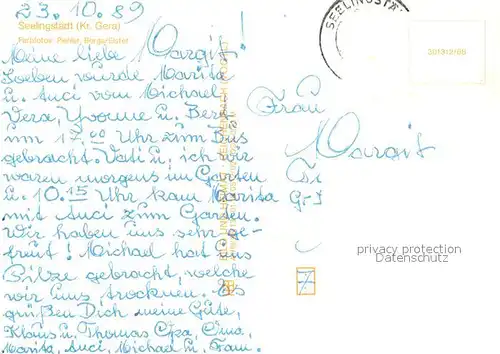 23.10.89
Seelingstädt (Kr. Gera)
SEELINGSTÄ
Meine liebe Margit!
Soeben wurde Marita
u. Anci vom Michael
Vera, Yvonne u. Bernd
um 17.00 Uhr zum Bus
gebracht. Vati u. ich wir
waren morgens im Garten
u. 10.15 Uhr kam Marita
mit Anci zum Garten.
Wir haben uns sehr ge-
freut! Michael hat uns
Pilze gebracht, welche
wir uns trocknen. Es
grüßen Dich meine Gute,
Klaus u. Thomas Opa, Oma,
Marita, Anci, Michael u. Fam.
Frau
Margit
privacy protection
Datenschutz
7